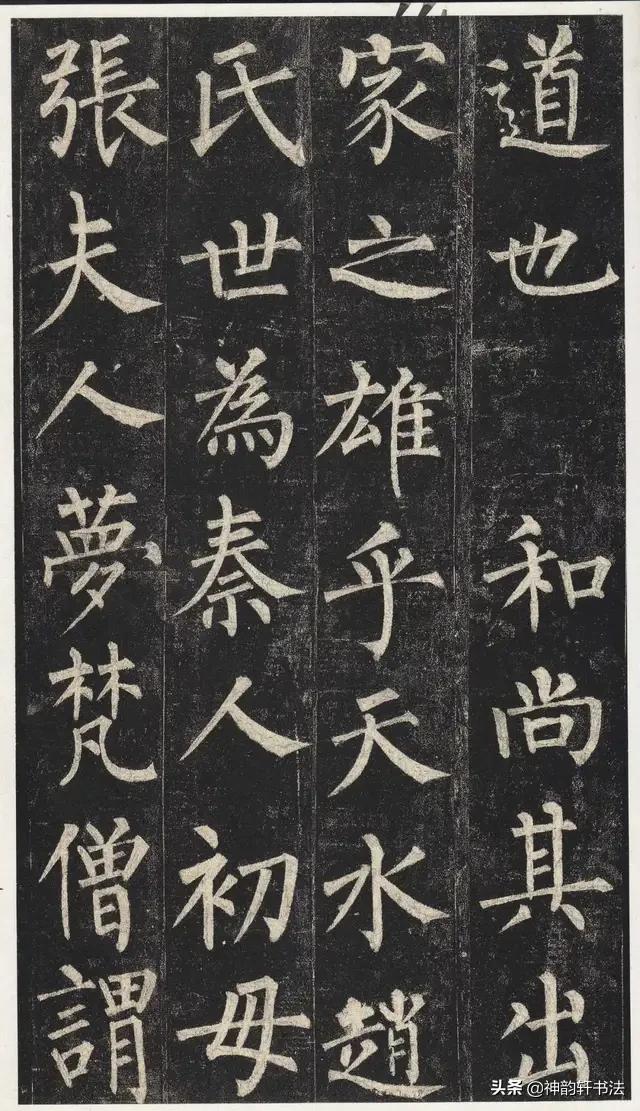 道也 和尚其出
家之雄乎天水趙
氏世為秦人初母
張夫人夢梵僧謂
头条 @神韵轩书法